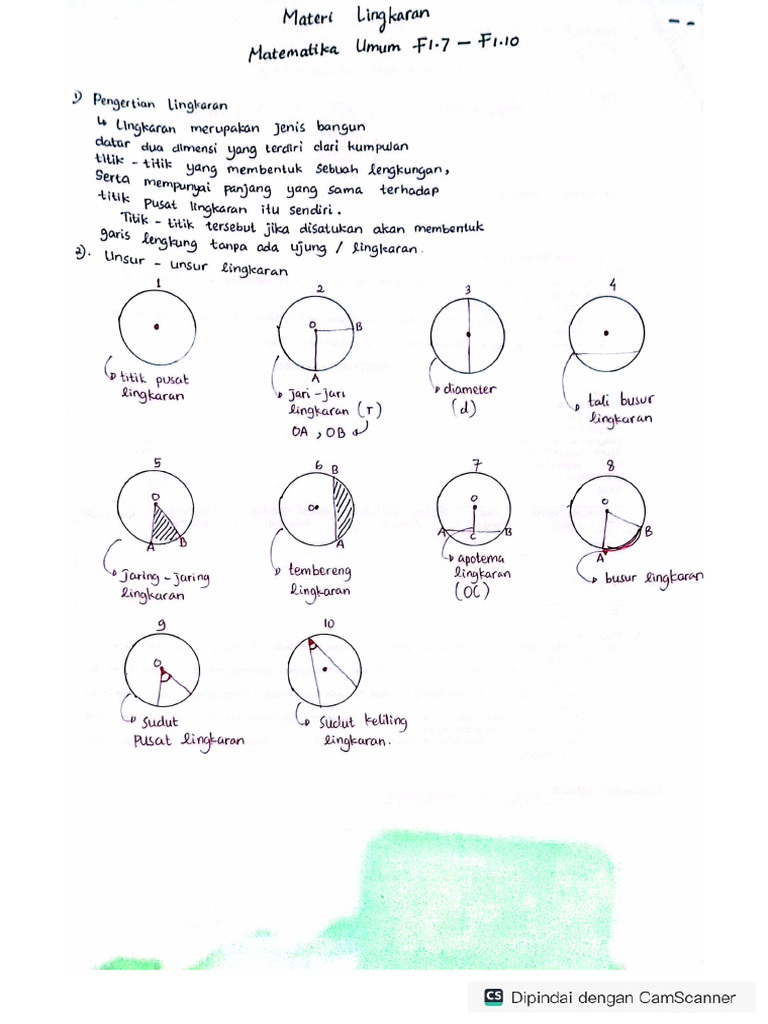 Materi Lingkaran
Matematika Umum F1.7 – F1.10
1) Pengertian Lingkaran
↳ Lingkaran merupakan jenis bangun
datar dua dimensi yang terdiri dari kumpulan
titik – titik yang membentuk sebuah lengkungan,
Serta mempunyai panjang yang sama terhadap
titik pusat lingkaran itu sendiri.
Titik – titik tersebut jika disatukan akan membentuk
garis lengkung tanpa ada ujung / lingkaran.
2). Unsur – unsur lingkaran
1 2 3 4
O B
A
titik pusat
lingkaran
jari – jari
lingkaran (r)
OA , OB
diameter
(d)
tali busur
lingkaran
5 6 7 8
O A B
B O A
O A C B
O B A
jaring – jaring
lingkaran
tembereng
lingkaran
apotema
lingkaran
(OC)
busur lingkaran
9 10
O
sudut
pusat lingkaran
sudut keliling
lingkaran.
CS Dipindai dengan CamScanner